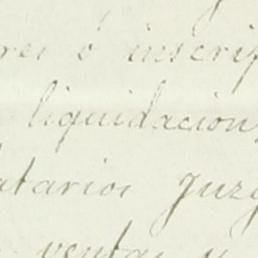 res ó inscrip
liquidacion,
atarios juzg
ventas y